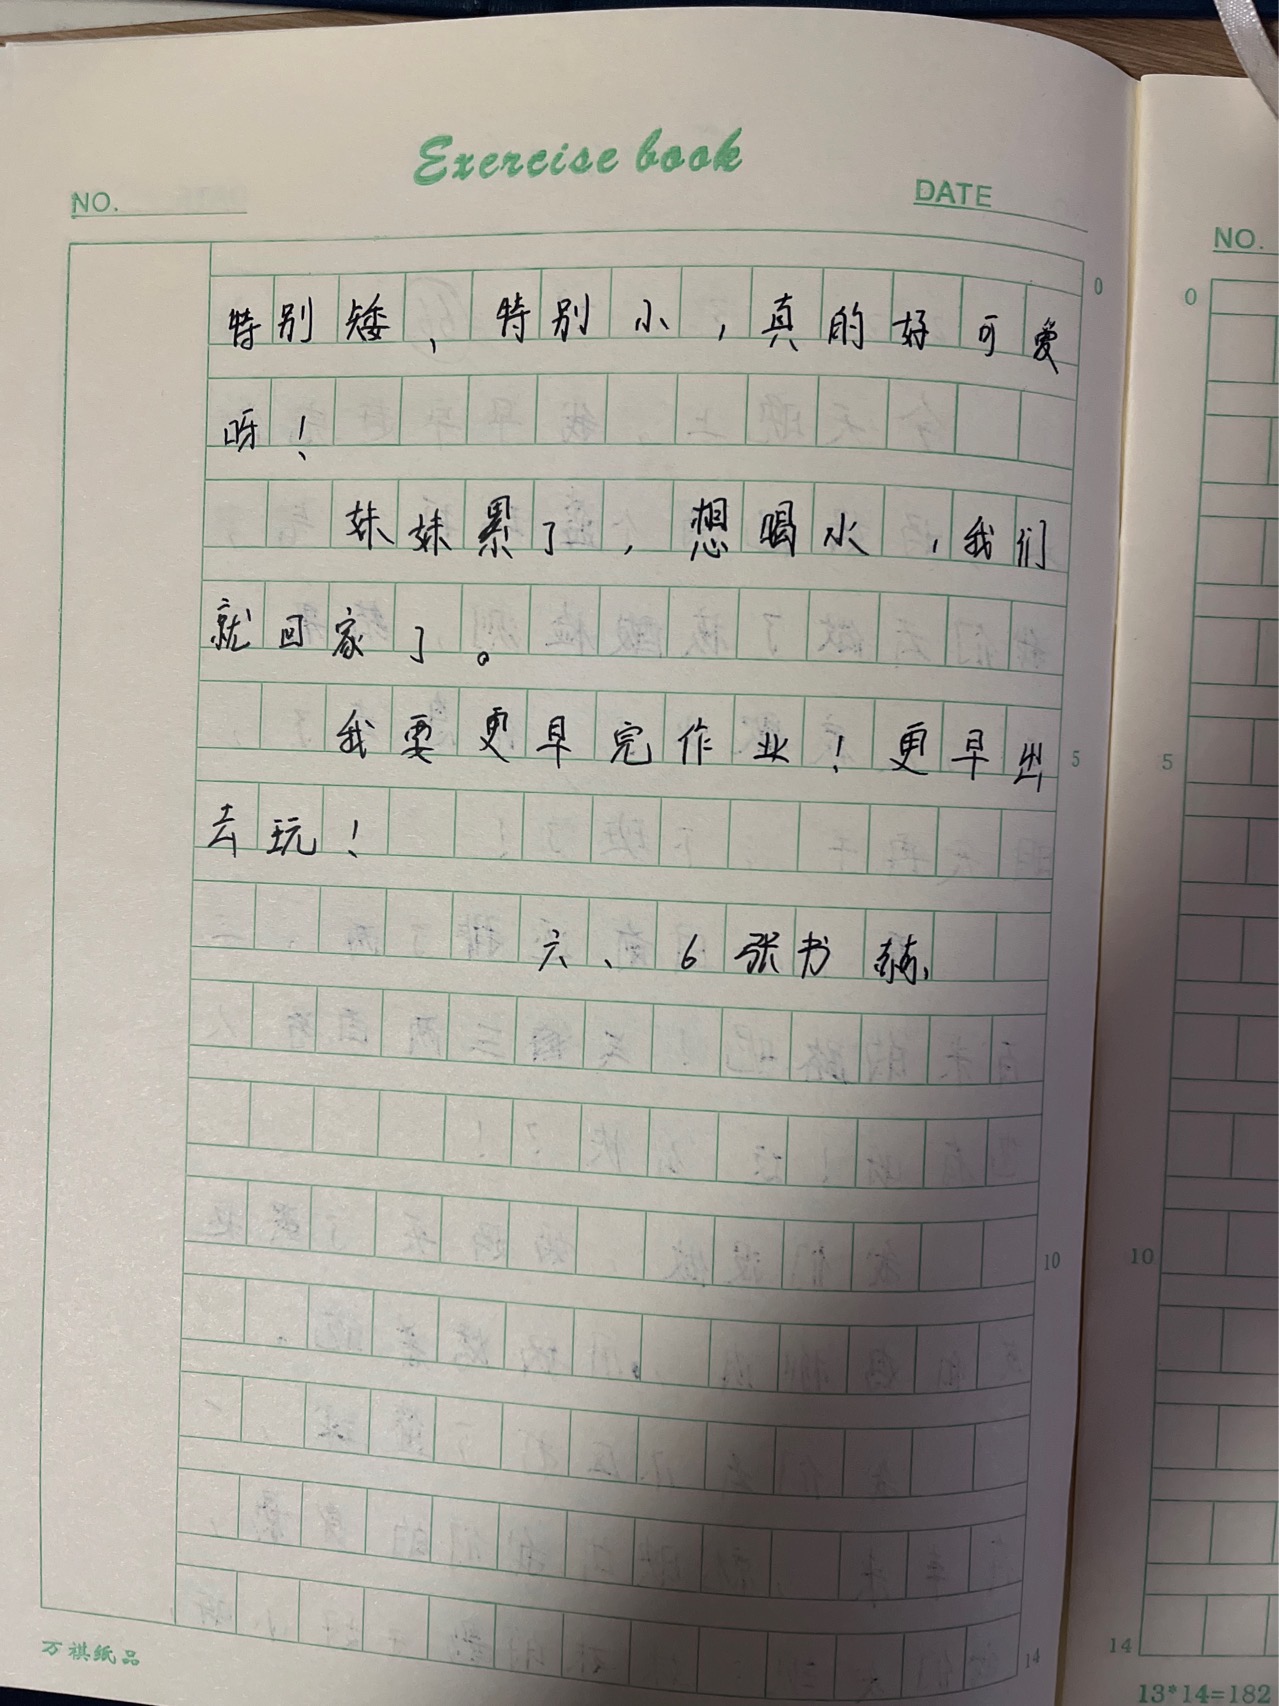 Exercise book
NO.
DATE
特别矮，特别小，真的好可爱
呀！
妹妹累了，想喝水，我们
就回家了。
我要更早完作业！更早出
去玩！
六、6张书
0
5
10
14
万祺纸品
NO.
0
5
10
14
13*14=182